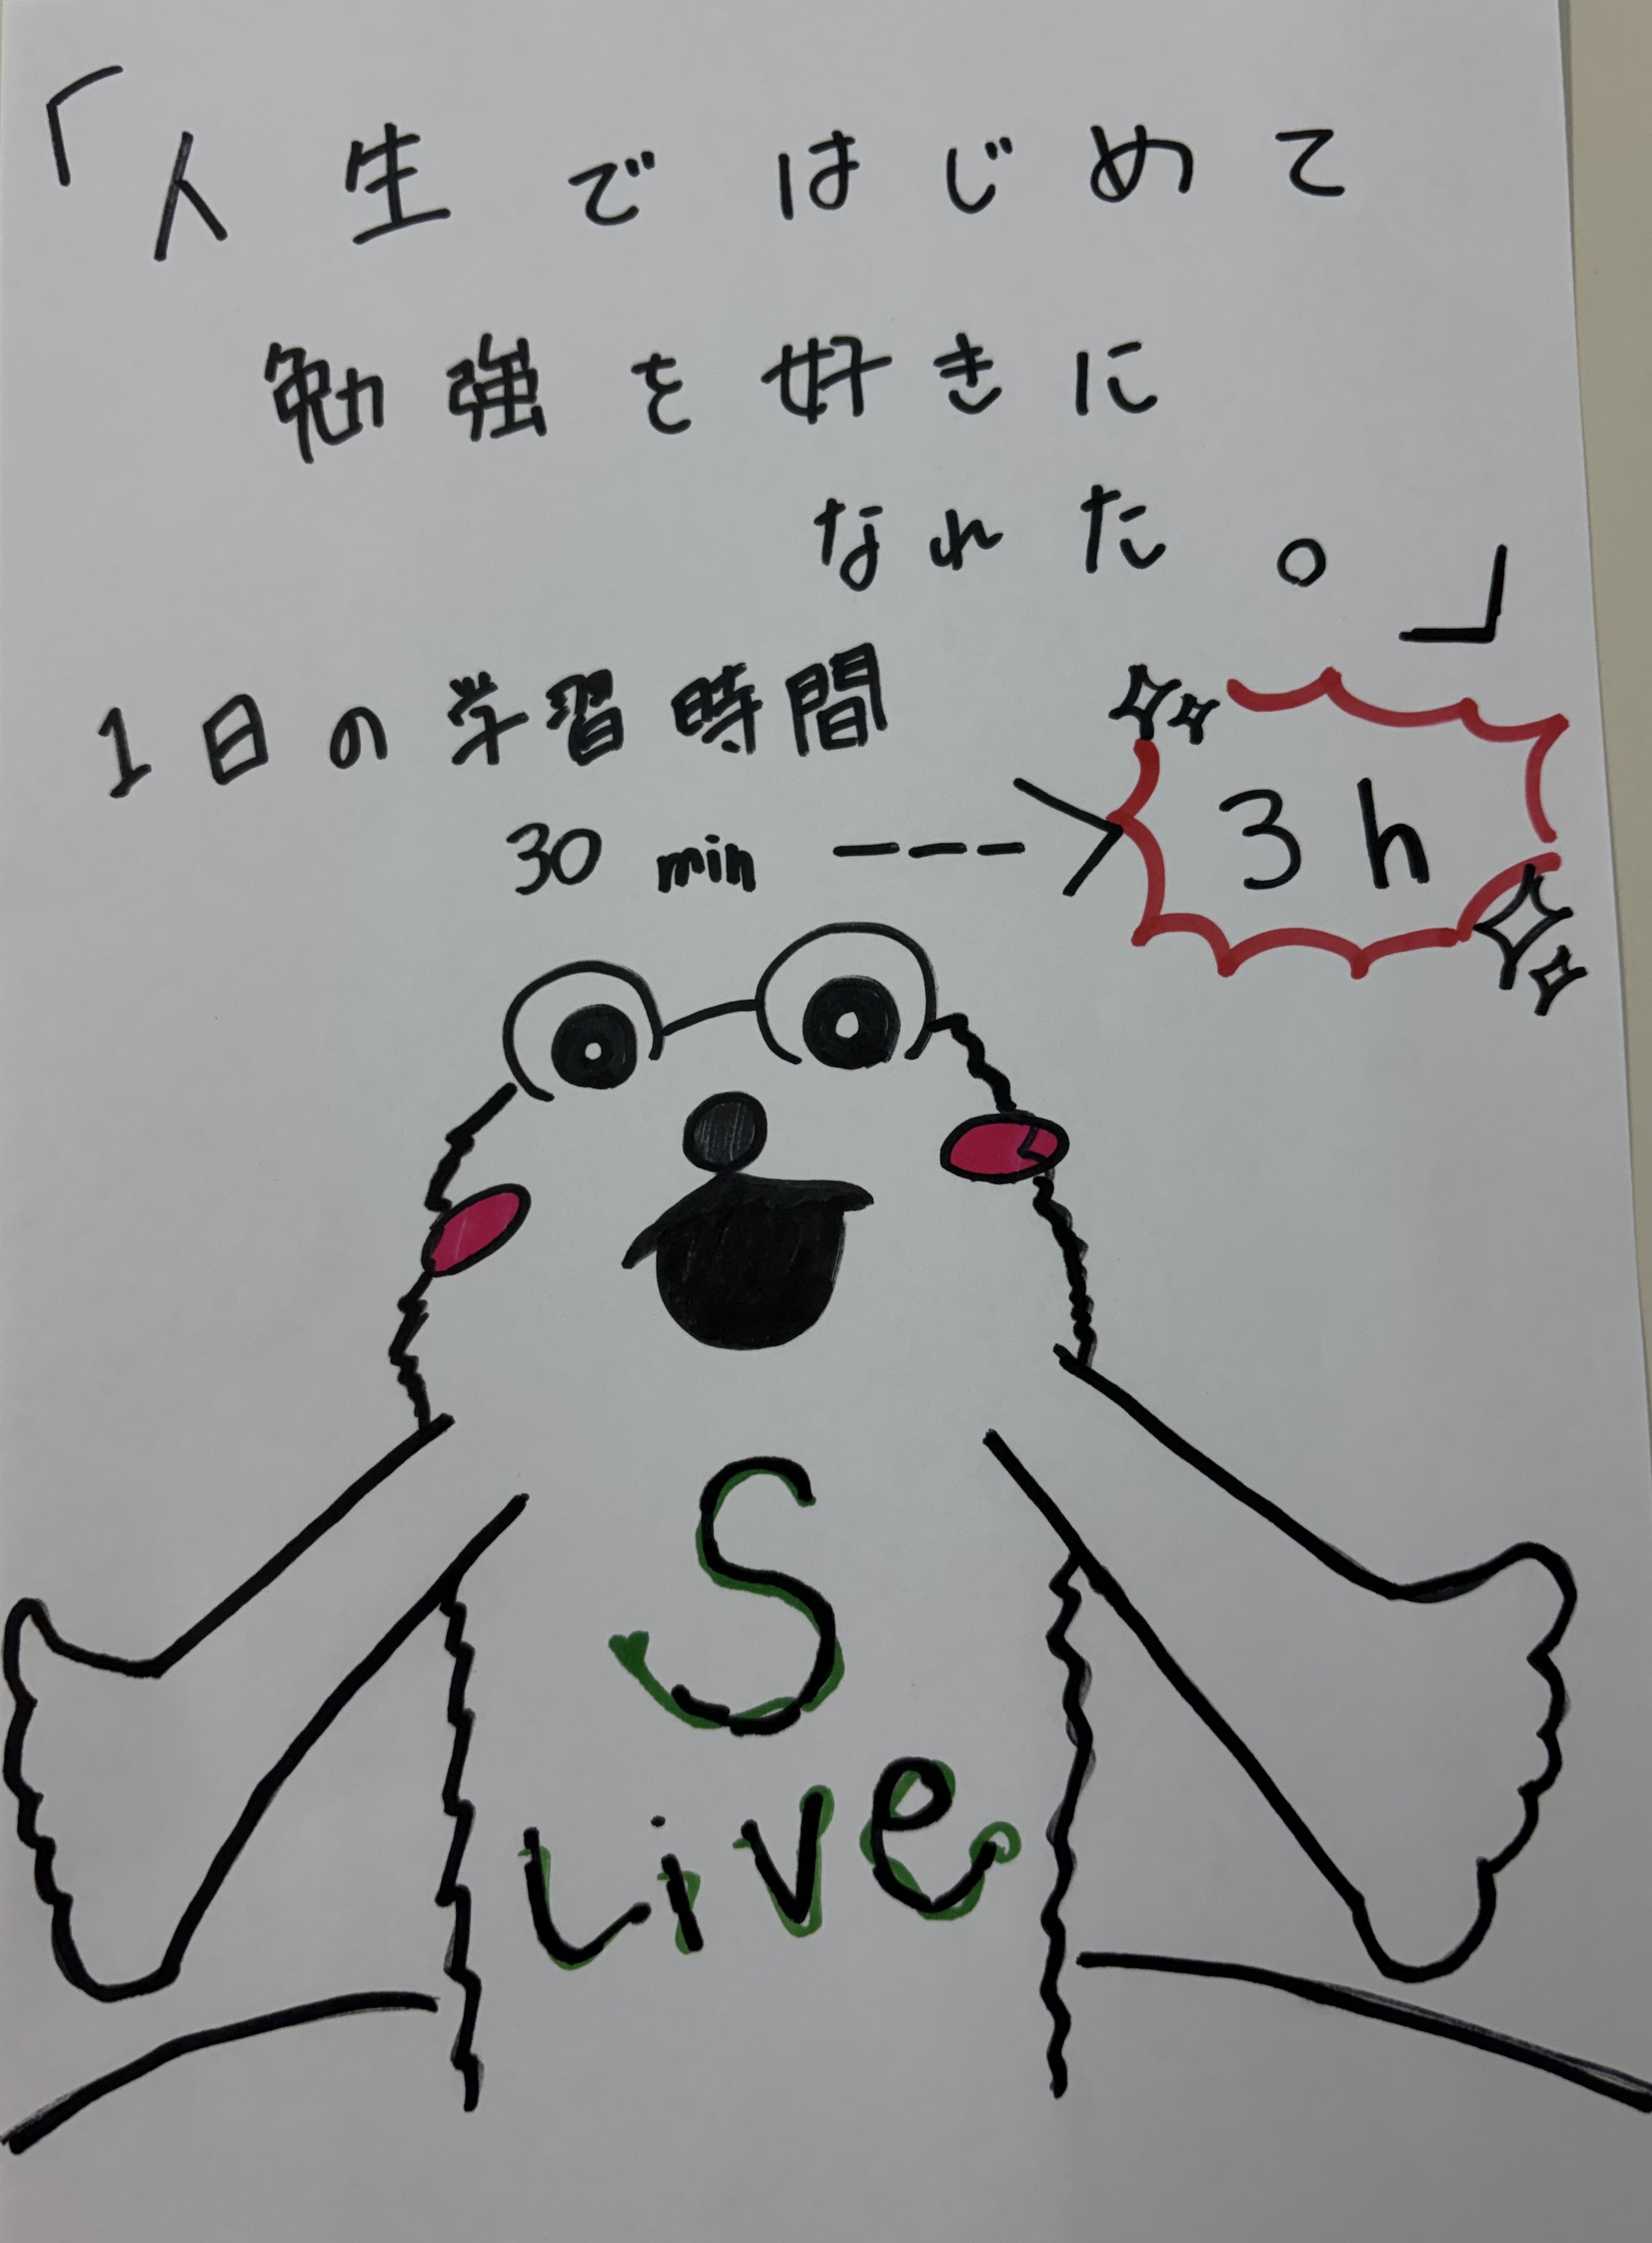 「人生ではじめて
勉強を好きに
なれた。」
1日の学習時間
30 min ---> 3h
S
Live